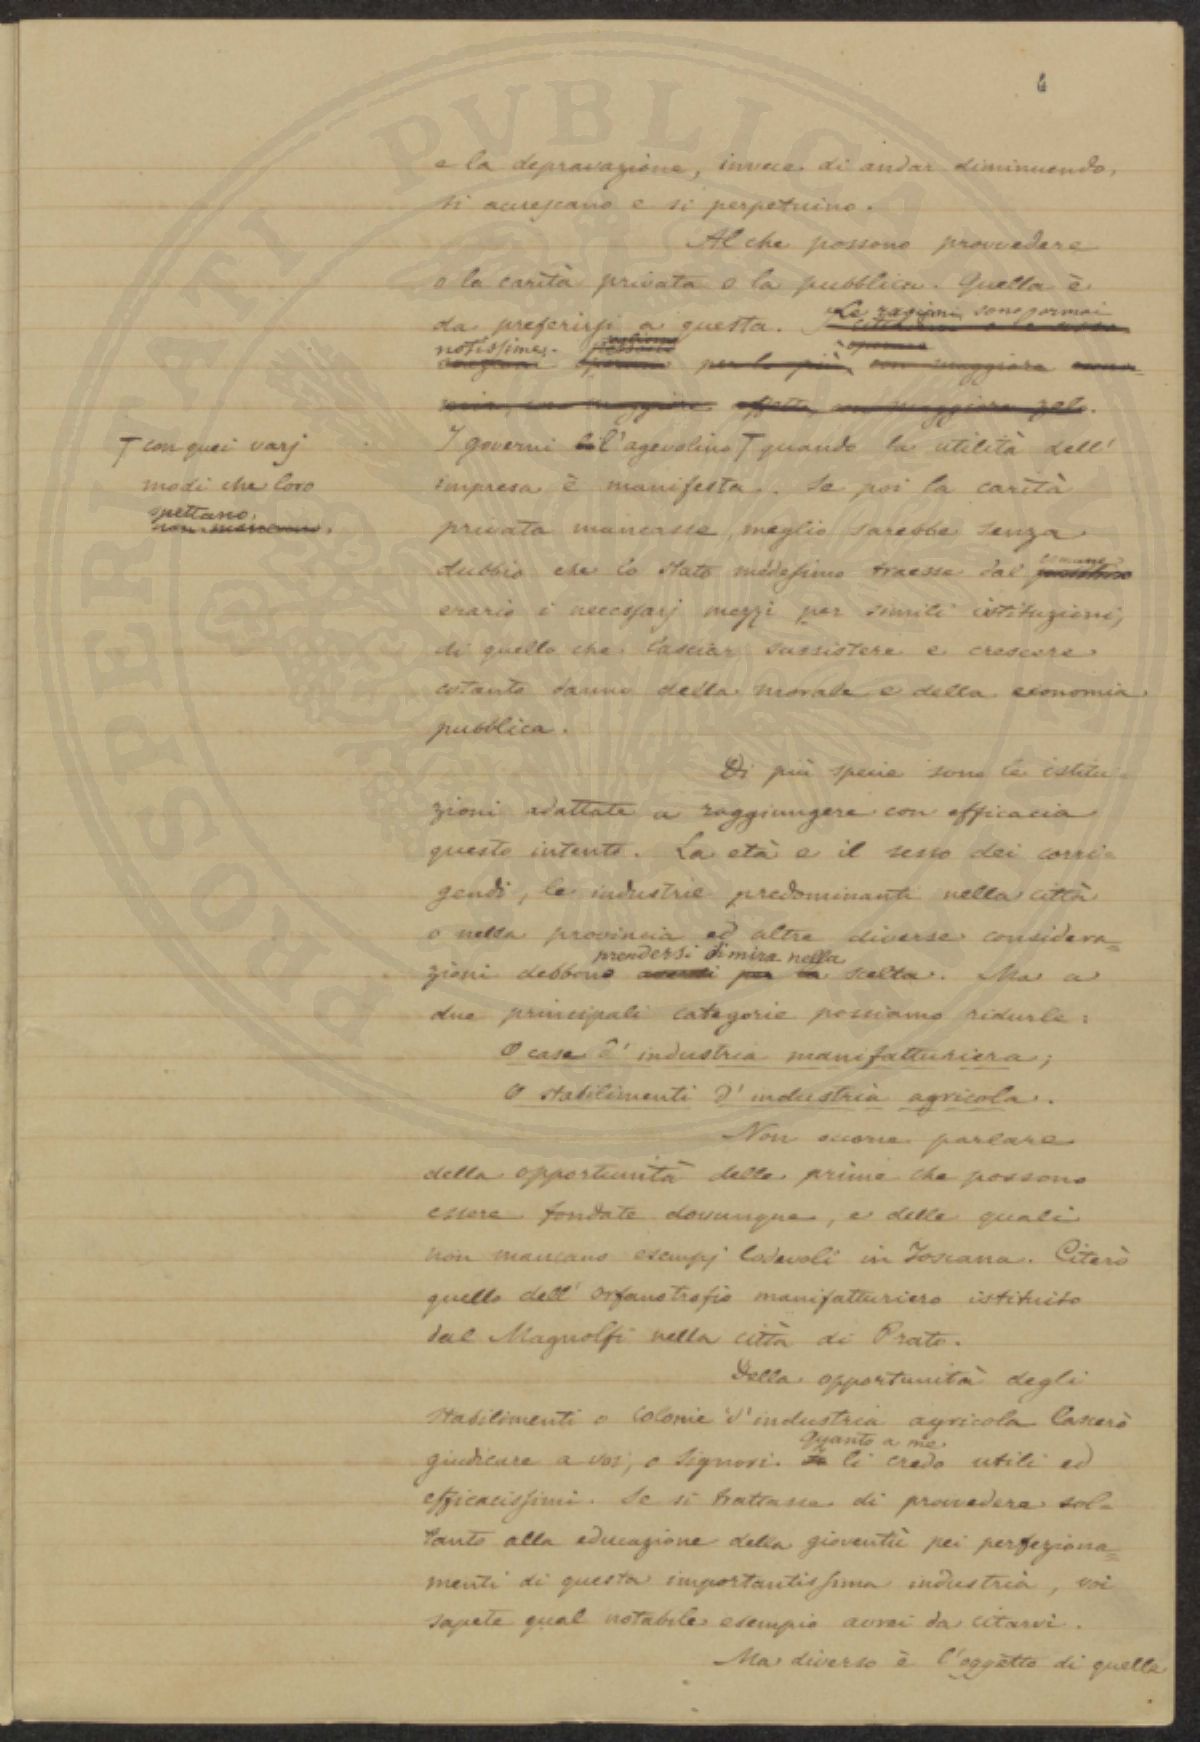 4
e la depravazione, invece di andar diminuendo,
si accrescano e si perpetuino.
Al che possono provvedere
o la carità privata o la pubblica. Quella è
Le ragioni sono ormai
da preferirsi a questa.
notissime.
per lo più con maggiore
con maggiore zelo.
I governi l'agevolino quando la utilità dell'
con quei varj
modi che loro
spettano.
non mancano.
impresa è manifesta. Se poi la carità
privata mancasse, meglio sarebbe senza
comune
dubbio che lo Stato medesimo traesse dal
erario i necessarj mezzi per simili istituzioni,
di quello che lasciar sussistere e crescere
cotanto danno della morale e della economia
pubblica.
Di più specie sono le istitu-
zioni adattate a raggiungere con efficacia
questo intento. La età e il sesso dei corri-
gendi, le industrie predominanti nella città
o nella provincia ed altre diverse considera-
prendersi di mira nella
zioni debbono aversi per la scelta. Ma a
due principali categorie possiamo ridurle:
O case d'industria manifatturiera;
O stabilimenti d'industria agricola.
Non occorre parlare
della opportunità delle prime che possono
essere fondate dovunque, e delle quali
non mancano esempj lodevoli in Toscana. Citerò
quello dell'Orfanotrofio manifatturiero istituito
dal Magnolfi nella città di Prato.
Della opportunità degli
stabilimenti o colonie d'industria agricola lascerò
Quanto a me
giudicare a voi, o Signori. li credo utili ed
efficacissimi. Se si trattasse di provvedere sol-
tanto alla educazione della gioventù pei perfeziona-
menti di questa importantissima industria, voi
sapete qual notabile esempio avrei da citarvi.
Ma diverso è l'oggetto di quella
PROSPERITATI PVBLICAE